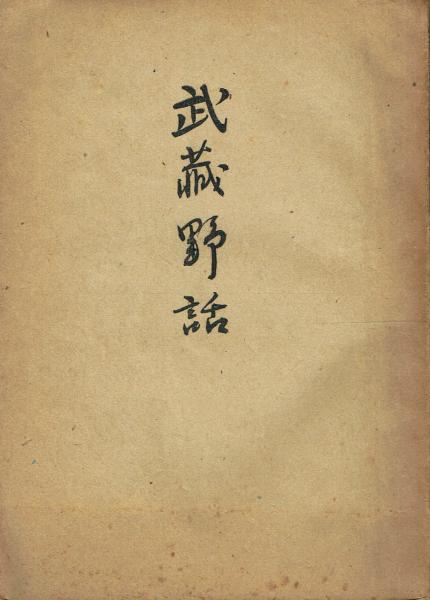 武藏野話